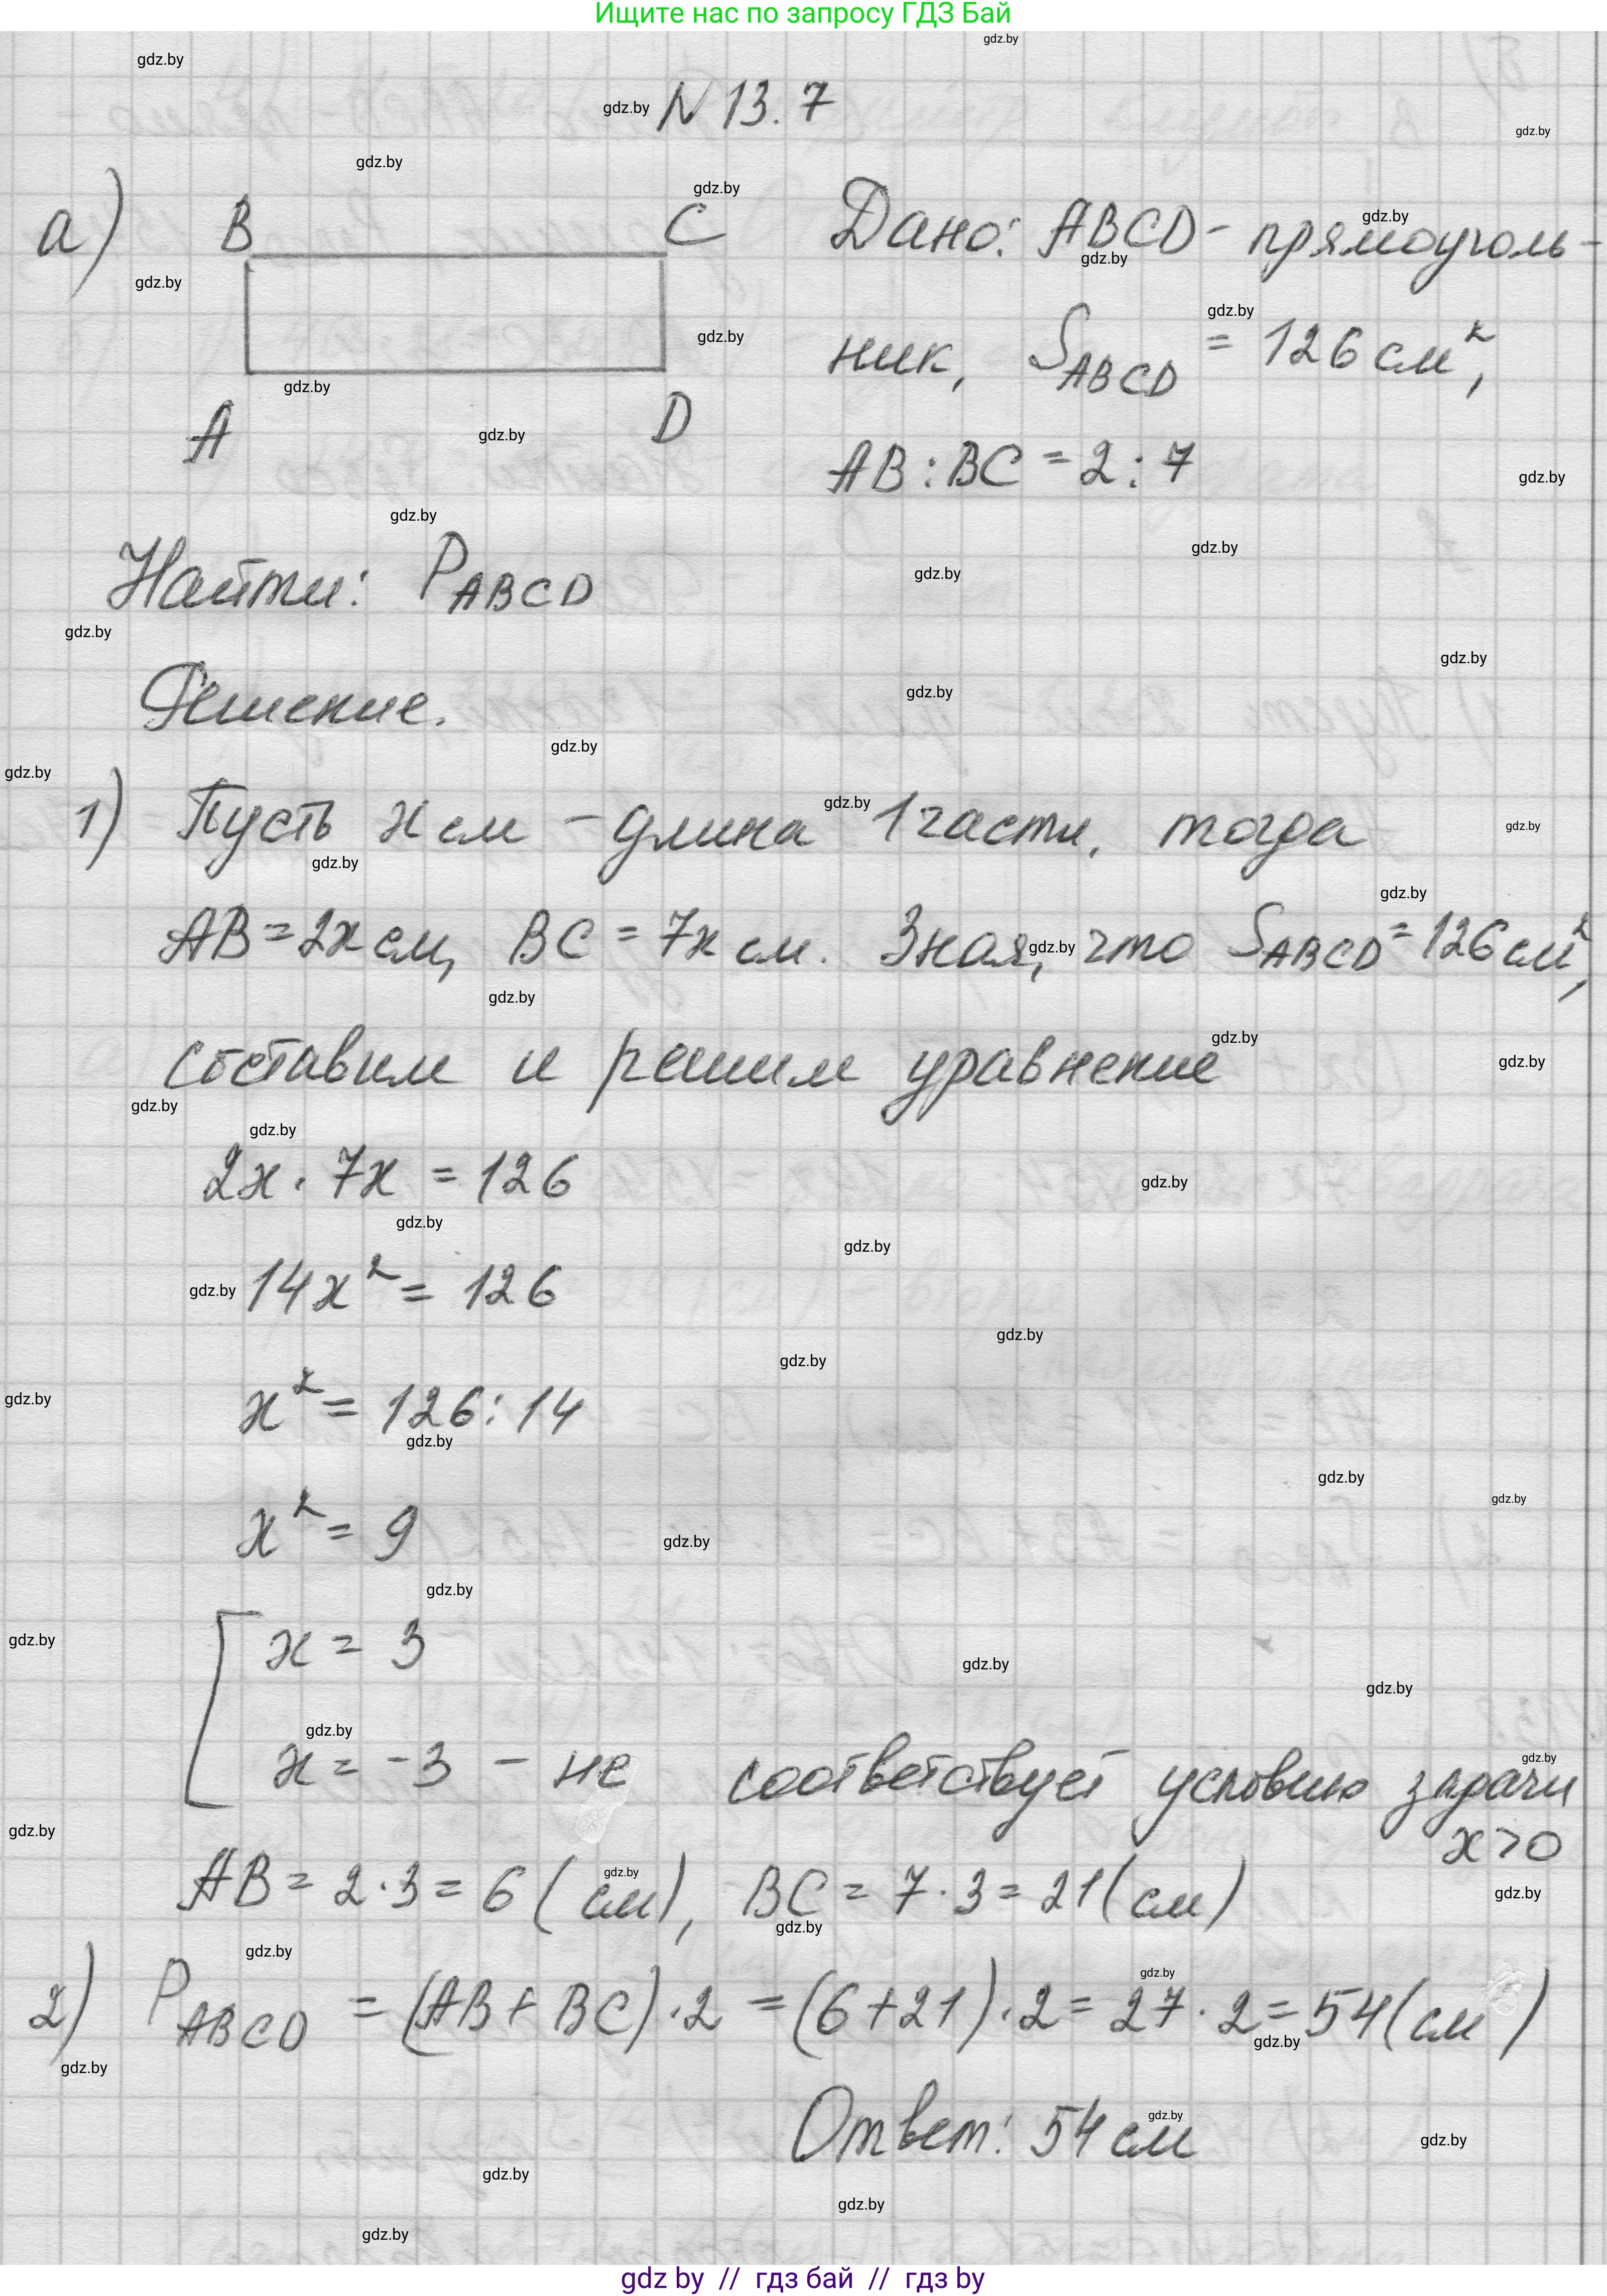 Ищите нас по запросу ГДЗ Бай
N 13.7
а) B C
A D
Дано: ABCD - прямоуголь-
ник, S ABCD = 126 см²,
AB : BC = 2 : 7
Найти: P ABCD
Решение.
1) Пусть x см - длина 1 части, тогда
AB = 2x см, BC = 7x см. Зная, что S ABCD = 126 см²,
составим и решим уравнение
2x · 7x = 126
14x² = 126
x² = 126 : 14
x² = 9
x = 3
x = -3 - не соответствует условию задачи
x > 0
AB = 2 · 3 = 6 (см), BC = 7 · 3 = 21 (см)
2) P ABCD = (AB + BC) · 2 = (6 + 21) · 2 = 27 · 2 = 54 (см)
Ответ: 54 см
gdz by // гдз бай // гдз by